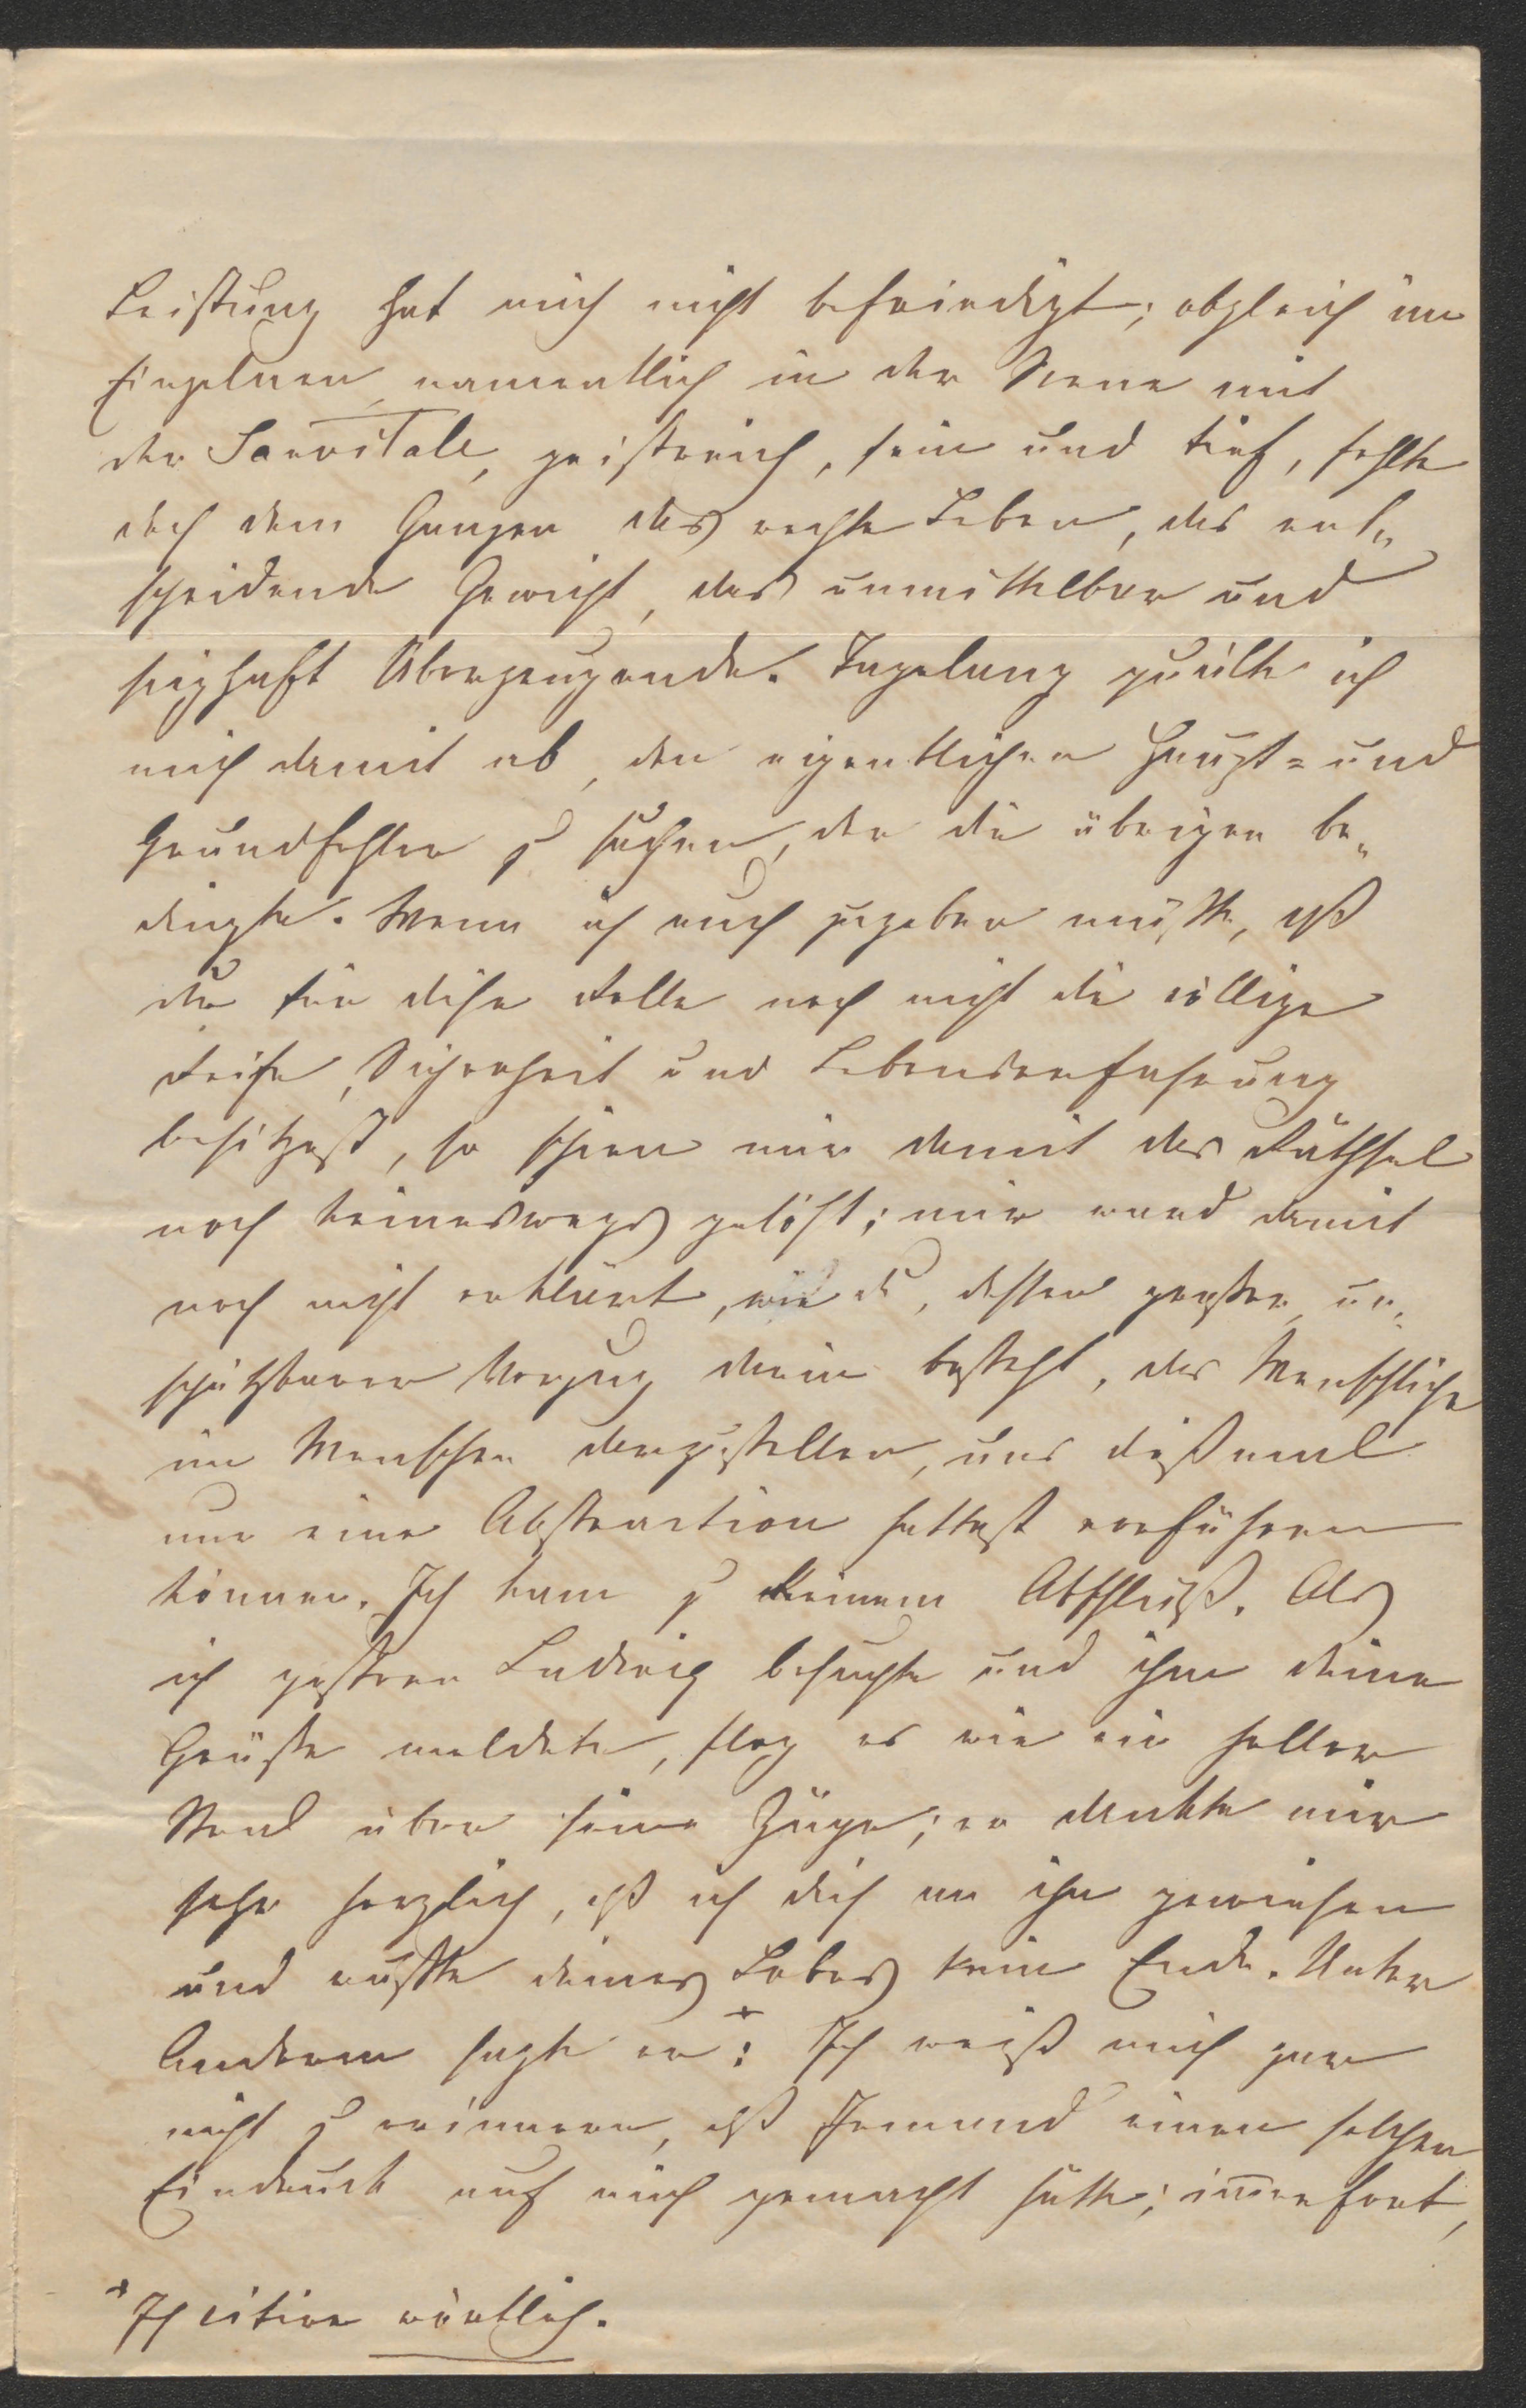 Leistung hat mich nicht befriedigt; obgleich im
Einzelnen, namentlich in der Scene mit
der Sanvitale, geistreich, fein und tief, fehlte
doch dem Ganzen das rechte Leben, das ent„
scheidende Gewicht, das unmittelbar und
sieghaft Überzeugende. Tagelang quälte ich
mich damit ab, den eigentlichen Haupt= und
Grundfehler z suchen, der die übrigen be„
dingte. Wenn ich auch zugeben mußte, dß
du für diese Rolle noch nicht die völlige
Reife, Sicherheit und Lebenserfahrung
besitzest, so schien mir damit das Räthsel
noch keineswegs gelöst; mir ward damit
noch nicht erklärt, wie du, dessen großer, un„
schätzbarer Vorzug darin besteht, das Menschliche
im Menschen darzustellen, uns dießmal
nur eine Abstraction hattest vorführen
können. Ich kam z keinem Abschluß. Als
ich gestern Ludwig besuchte und ihm deine
Grüße meldete, flog es wie ein heller
Stral über seine Züge; er dankte mir
sehr herzlich, dß ich dich an ihn gewiesen
und wußte deines Lobes kein Ende. Unter
Anderem sagte er*: Ich weiß mich gar
nicht z erinnern, dß Jemand einen solchen
Eindruck auf mich gemacht hätte; im̅erfort,
* Ich citire wörtlich.